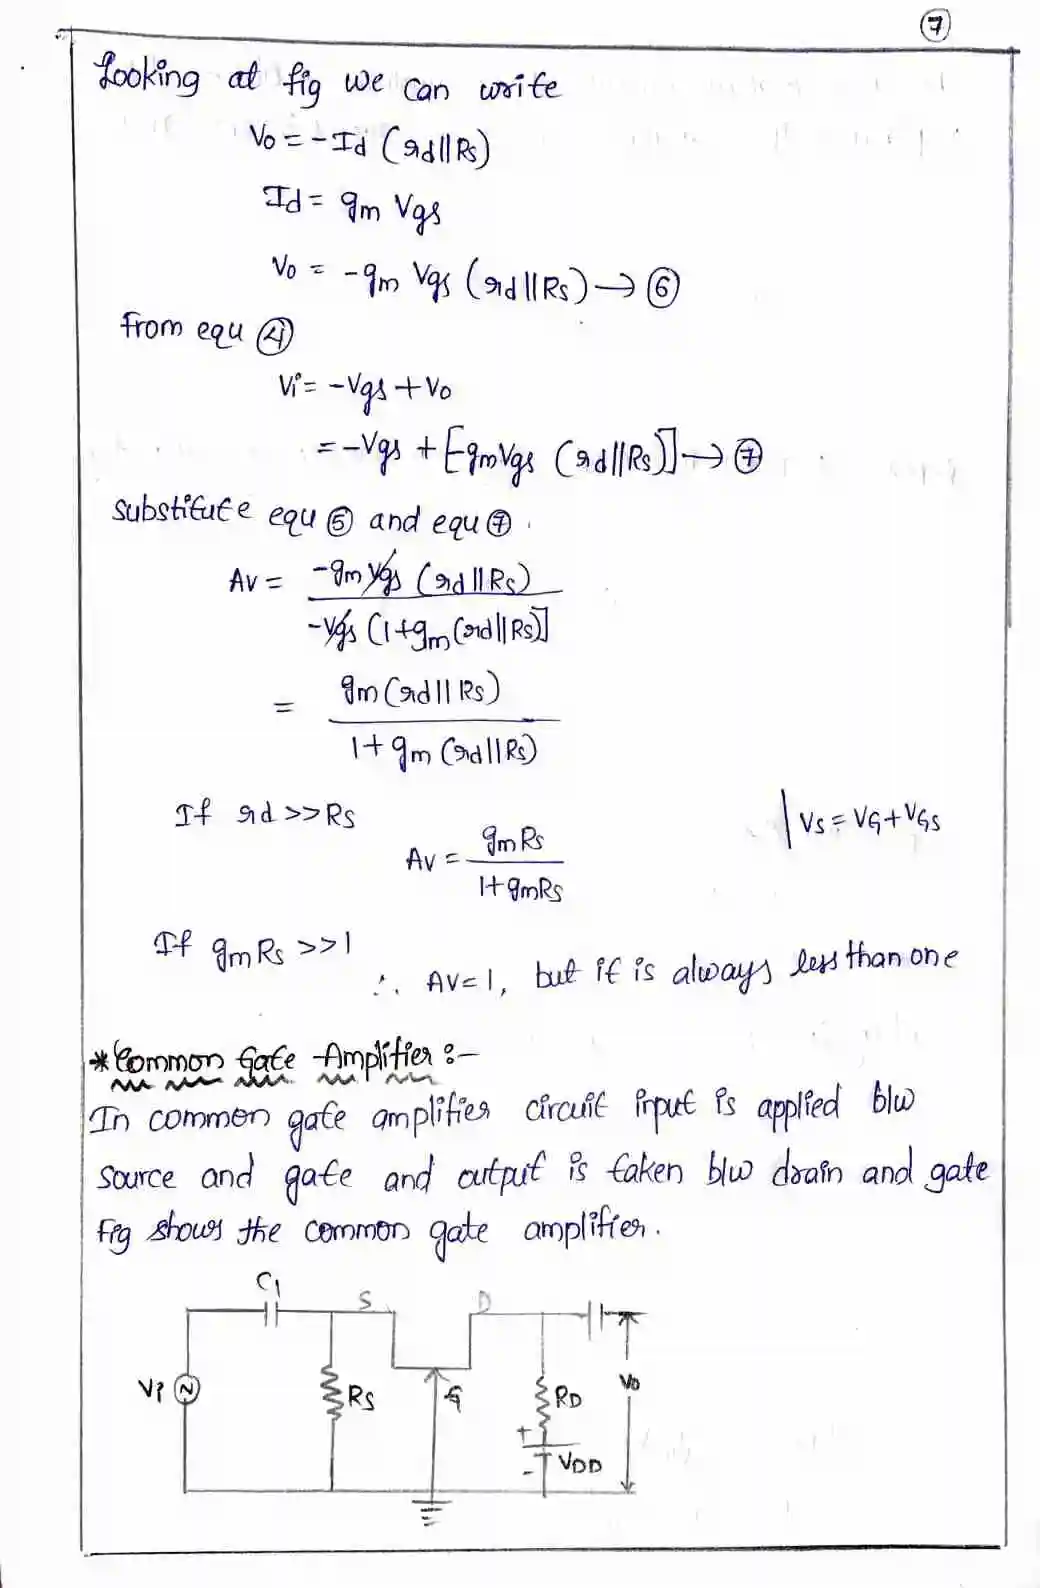 7
Looking at fig we can write
Vo = -Id (rd||Rs)
Id = gm Vgs
Vo = -gm Vgs (rd||Rs) → ⑥
From equ ④
Vi = -Vgs + Vo
= -Vgs + [-gmVgs (rd||Rs)] → ⑦
substitute equ ⑤ and equ ⑦.
Av = -gm Vgs (rd||Rs)
-Vgs [1+gm(rd||Rs)]
= gm (rd||Rs)
1+ gm (rd||Rs)
If rd >>Rs
| Vs = VG+VGS
Av = gmRs
1+gmRs
If gmRs >>1
∴ Av=1, but it is always less than one
*Common Gate Amplifier :-
In common gate amplifier circuit input is applied b/w
source and gate and output is taken b/w drain and gate
Fig shows the common gate amplifier.
C1
S D
Vi N Rs G RD Vo
+
- VDD